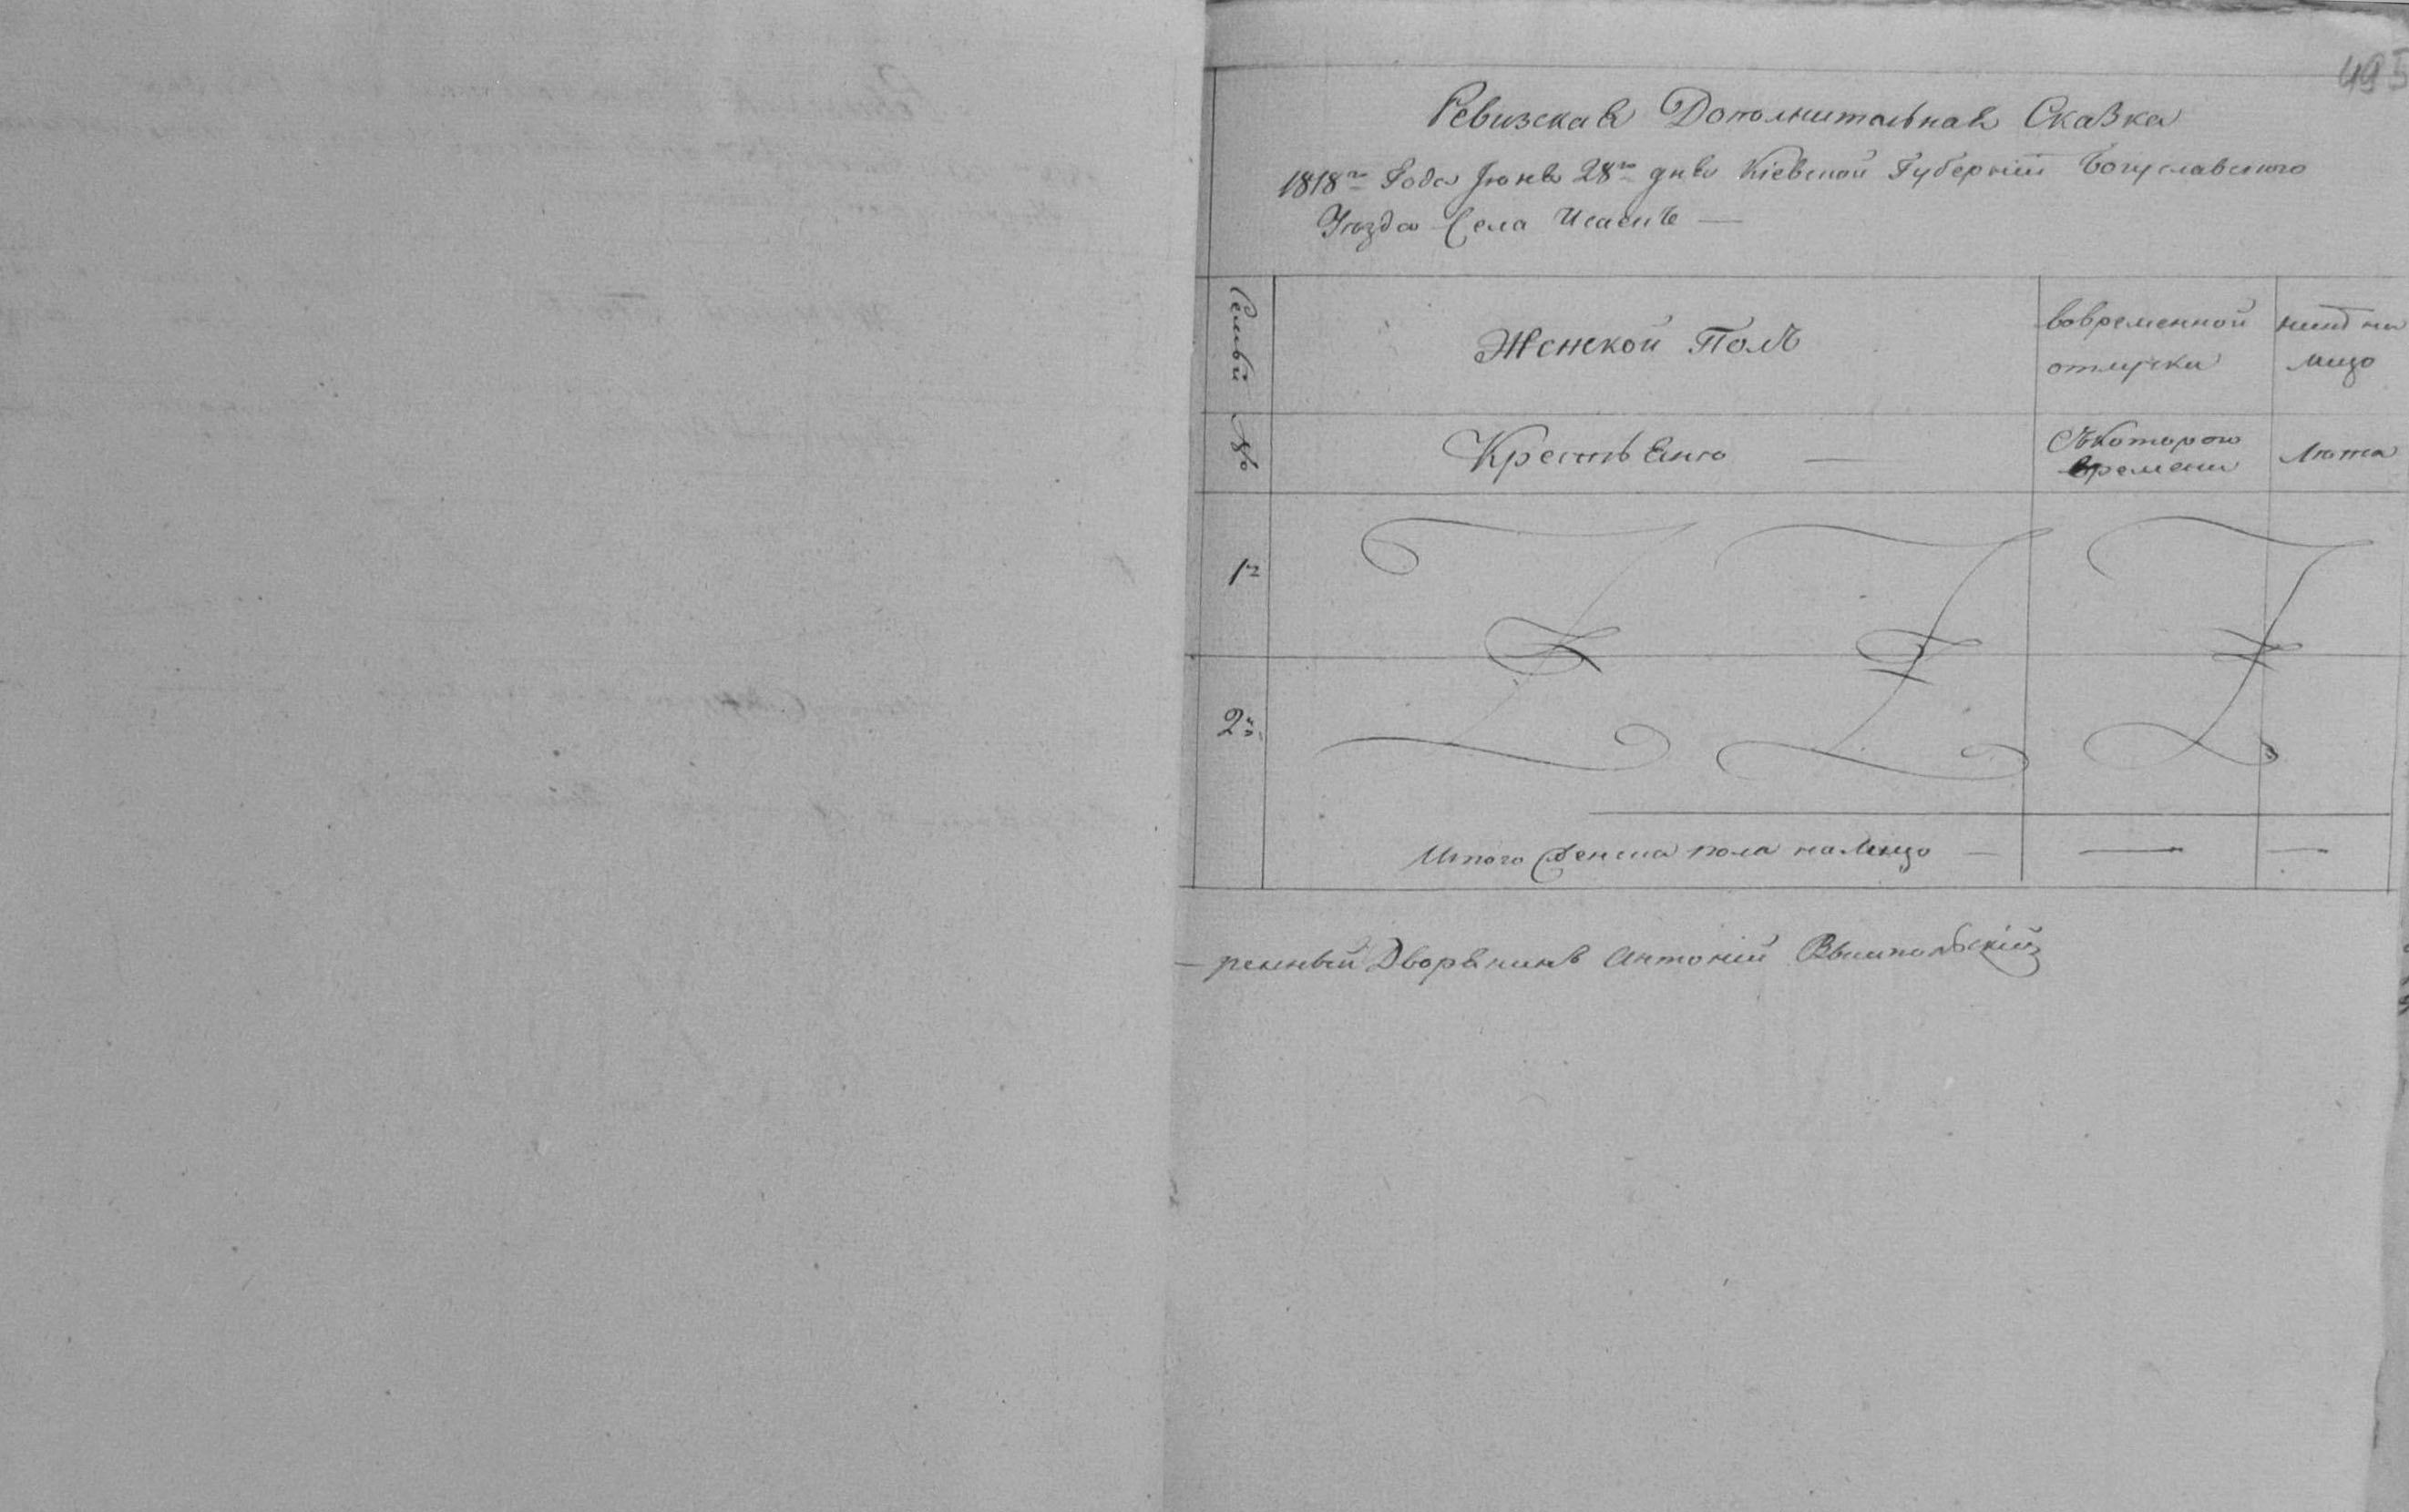 495
Ревизская Дополнительная Сказка
1818го Года Июня 28го дня Кіевской Губерніи Богуславского
Уѣзда Села Исаекъ —
Семьи №
Женской Полъ
вовременной
отлучки
нынѣ на
лицо
Крестьяне —
Съкоторого
времени
Лѣта
1я
2я
Итого Женска пола налицо — — —
— ренный Дворянинъ Антоній Вышпольскій